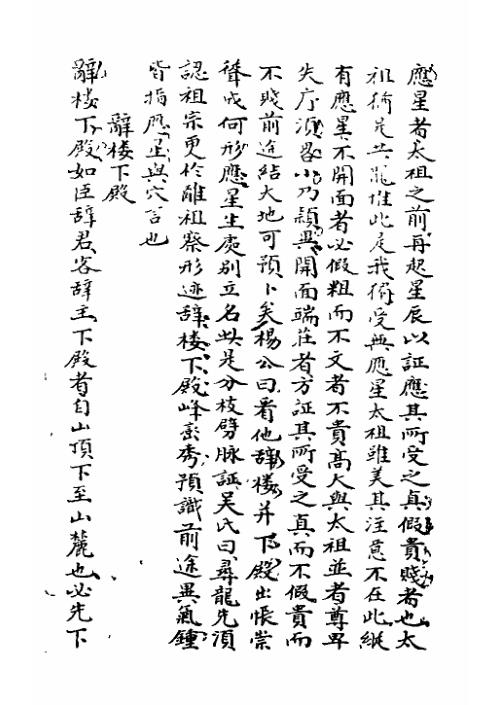 應星者太祖之前再起星辰以証應其所受之真假貴賤者也太
祖猶是共龍惟此是我獨受無應星太祖雖美其注意不在此縱
有應星不開面者必假粗而不文者不貴高大與太祖並者尊卑
失序須畧小乃穎異開面端莊者方証其所受之真而不假貴而
不賤前途結大地可預卜矣楊公曰看他辞楼并下殿出帳㟐
聳成何形應星生處別立名此是分枝劈脉証吴氏曰尋龍先須
認祖宗更於離祖察形迹辞楼下殿峰巒秀預識前途異氣鍾
皆指應星與穴言也
辭楼下殿
辭楼下殿如臣辞君客辞主下殿者自山頂下至山麓也必先下